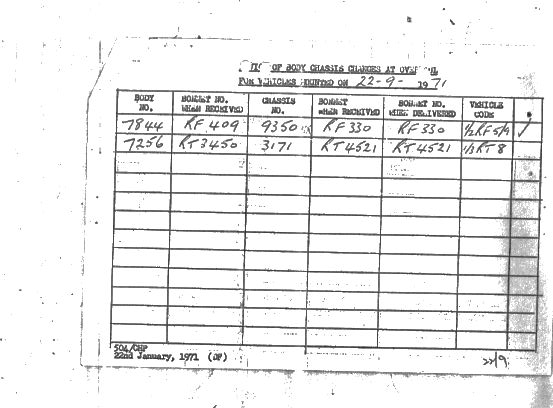 OF BODY CHASSIS CHANGES AT
FOR VEHICLES MOUNTED ON 22-9- 1971
BODY NO. BONNET NO. WHEN RECEIVED CHASSIS NO. BONNET WHEN RECEIVED BONNET NO. WHEN DELIVERED VEHICLE CODE
7844 RF 409 9350 RF 330 RF 330 1/2RF5/9 ✓
7256 RT3450 3171 RT4521 RT4521 1/3RT8
504/CHP
22nd January, 1971 (DF)